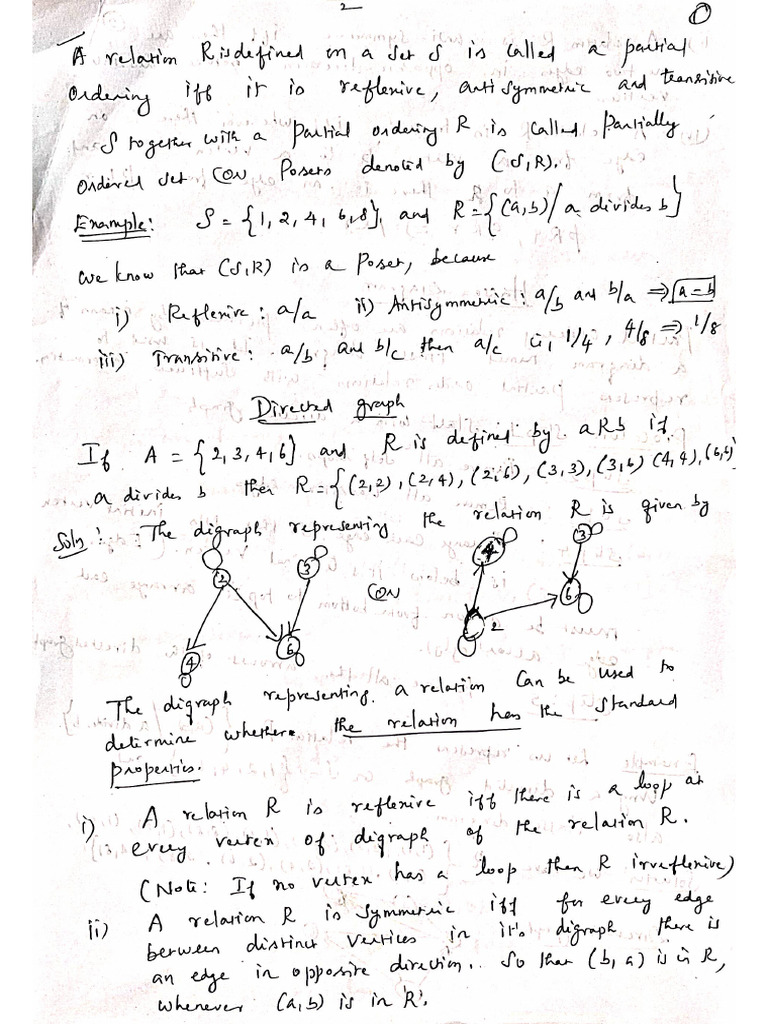 2
1
A relation R is defined on a set S is called a partial
ordering iff it is reflexive, antisymmetric and transitive
S together with a partial ordering R is called partially
ordered set (or) Posets denoted by (S,R).
Example: S = {1, 2, 4, 6, 8}, and R = {(a,b)/a divides b}
we know that (S,R) is a Poset, because
i) Reflexive: a/a ii) Antisymmetric: a/b and b/a ⇒ a = b
iii) Transitive: a/b and b/c then a/c i, 1/4, 4/8 ⇒ 1/8
Directed graph
If A = {2, 3, 4, 6} and R is defined by aRb if
a divides b then R = {(2,2), (2,4), (2,6), (3,3), (3,6) (4,4), (6,6)
Soln: The digraph representing the relation R is given by
2 3 4 6 (or) 4 3 2 6
The digraph representing a relation can be used to
determine whethere the relation has the standard
properties.
i) A relation R is reflexive iff there is a loop at
every vertex of digraph of the relation R.
(Note: If no vertex has a loop then R irreflexive)
ii) A relation R is symmetric iff for every edge
between distinct vertices in it's digraph there is
an edge in opposite direction. So that (b, a) is in R,
whenever (a,b) is in R.